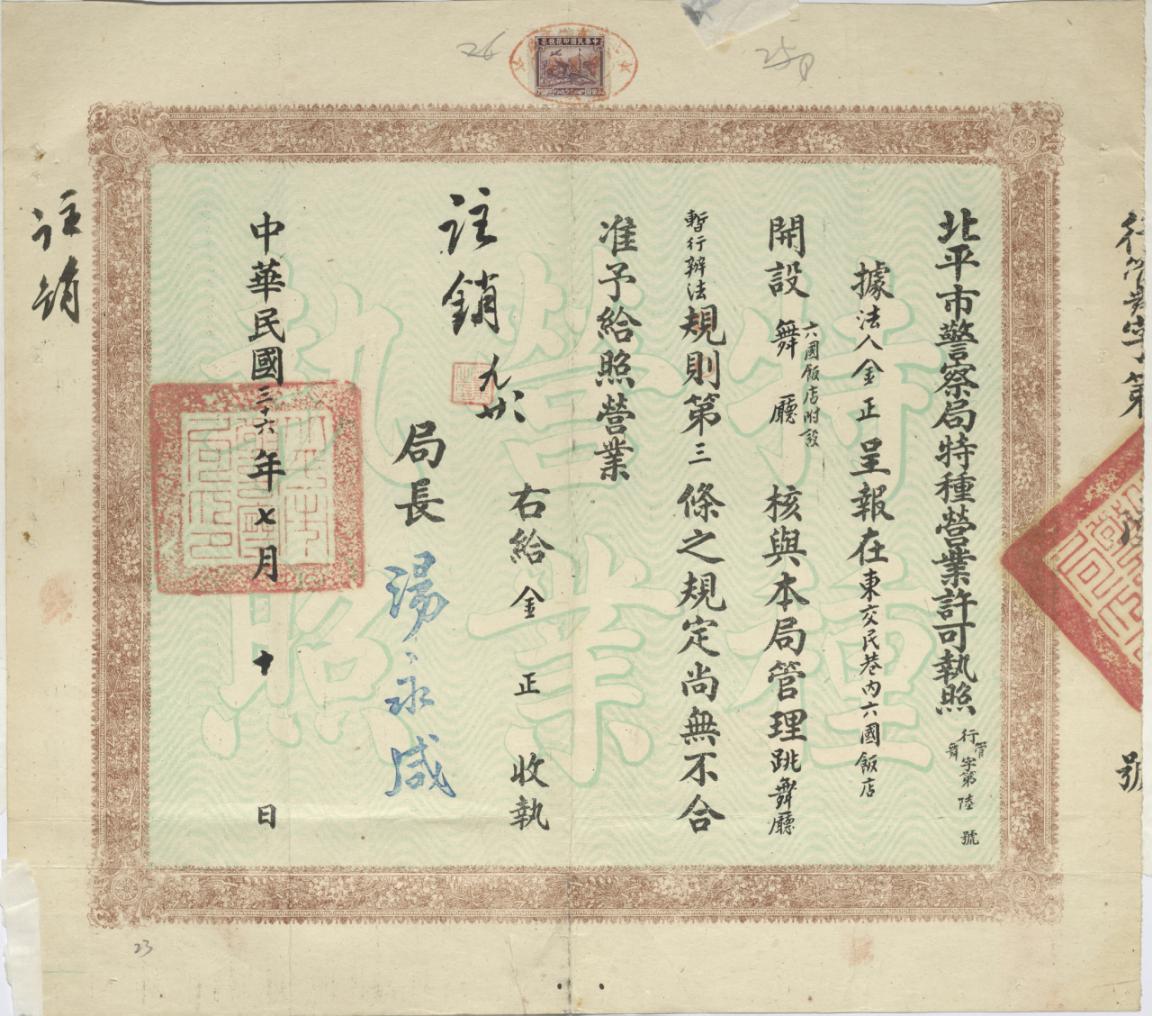 行管舞字第
號
北平市警察局特種營業許可執照
行管舞字第陸號
據法人金正呈報在東交民巷內六國飯店
開設六國飯店附設舞廳核與本局管理跳舞廳
暫行辦法規則第三條之規定尚無不合
准予給照營業
右給金正收執
註銷
局長湯永咸
中華民國三十六年七月十日
註銷
特種
營業
執照
26
23